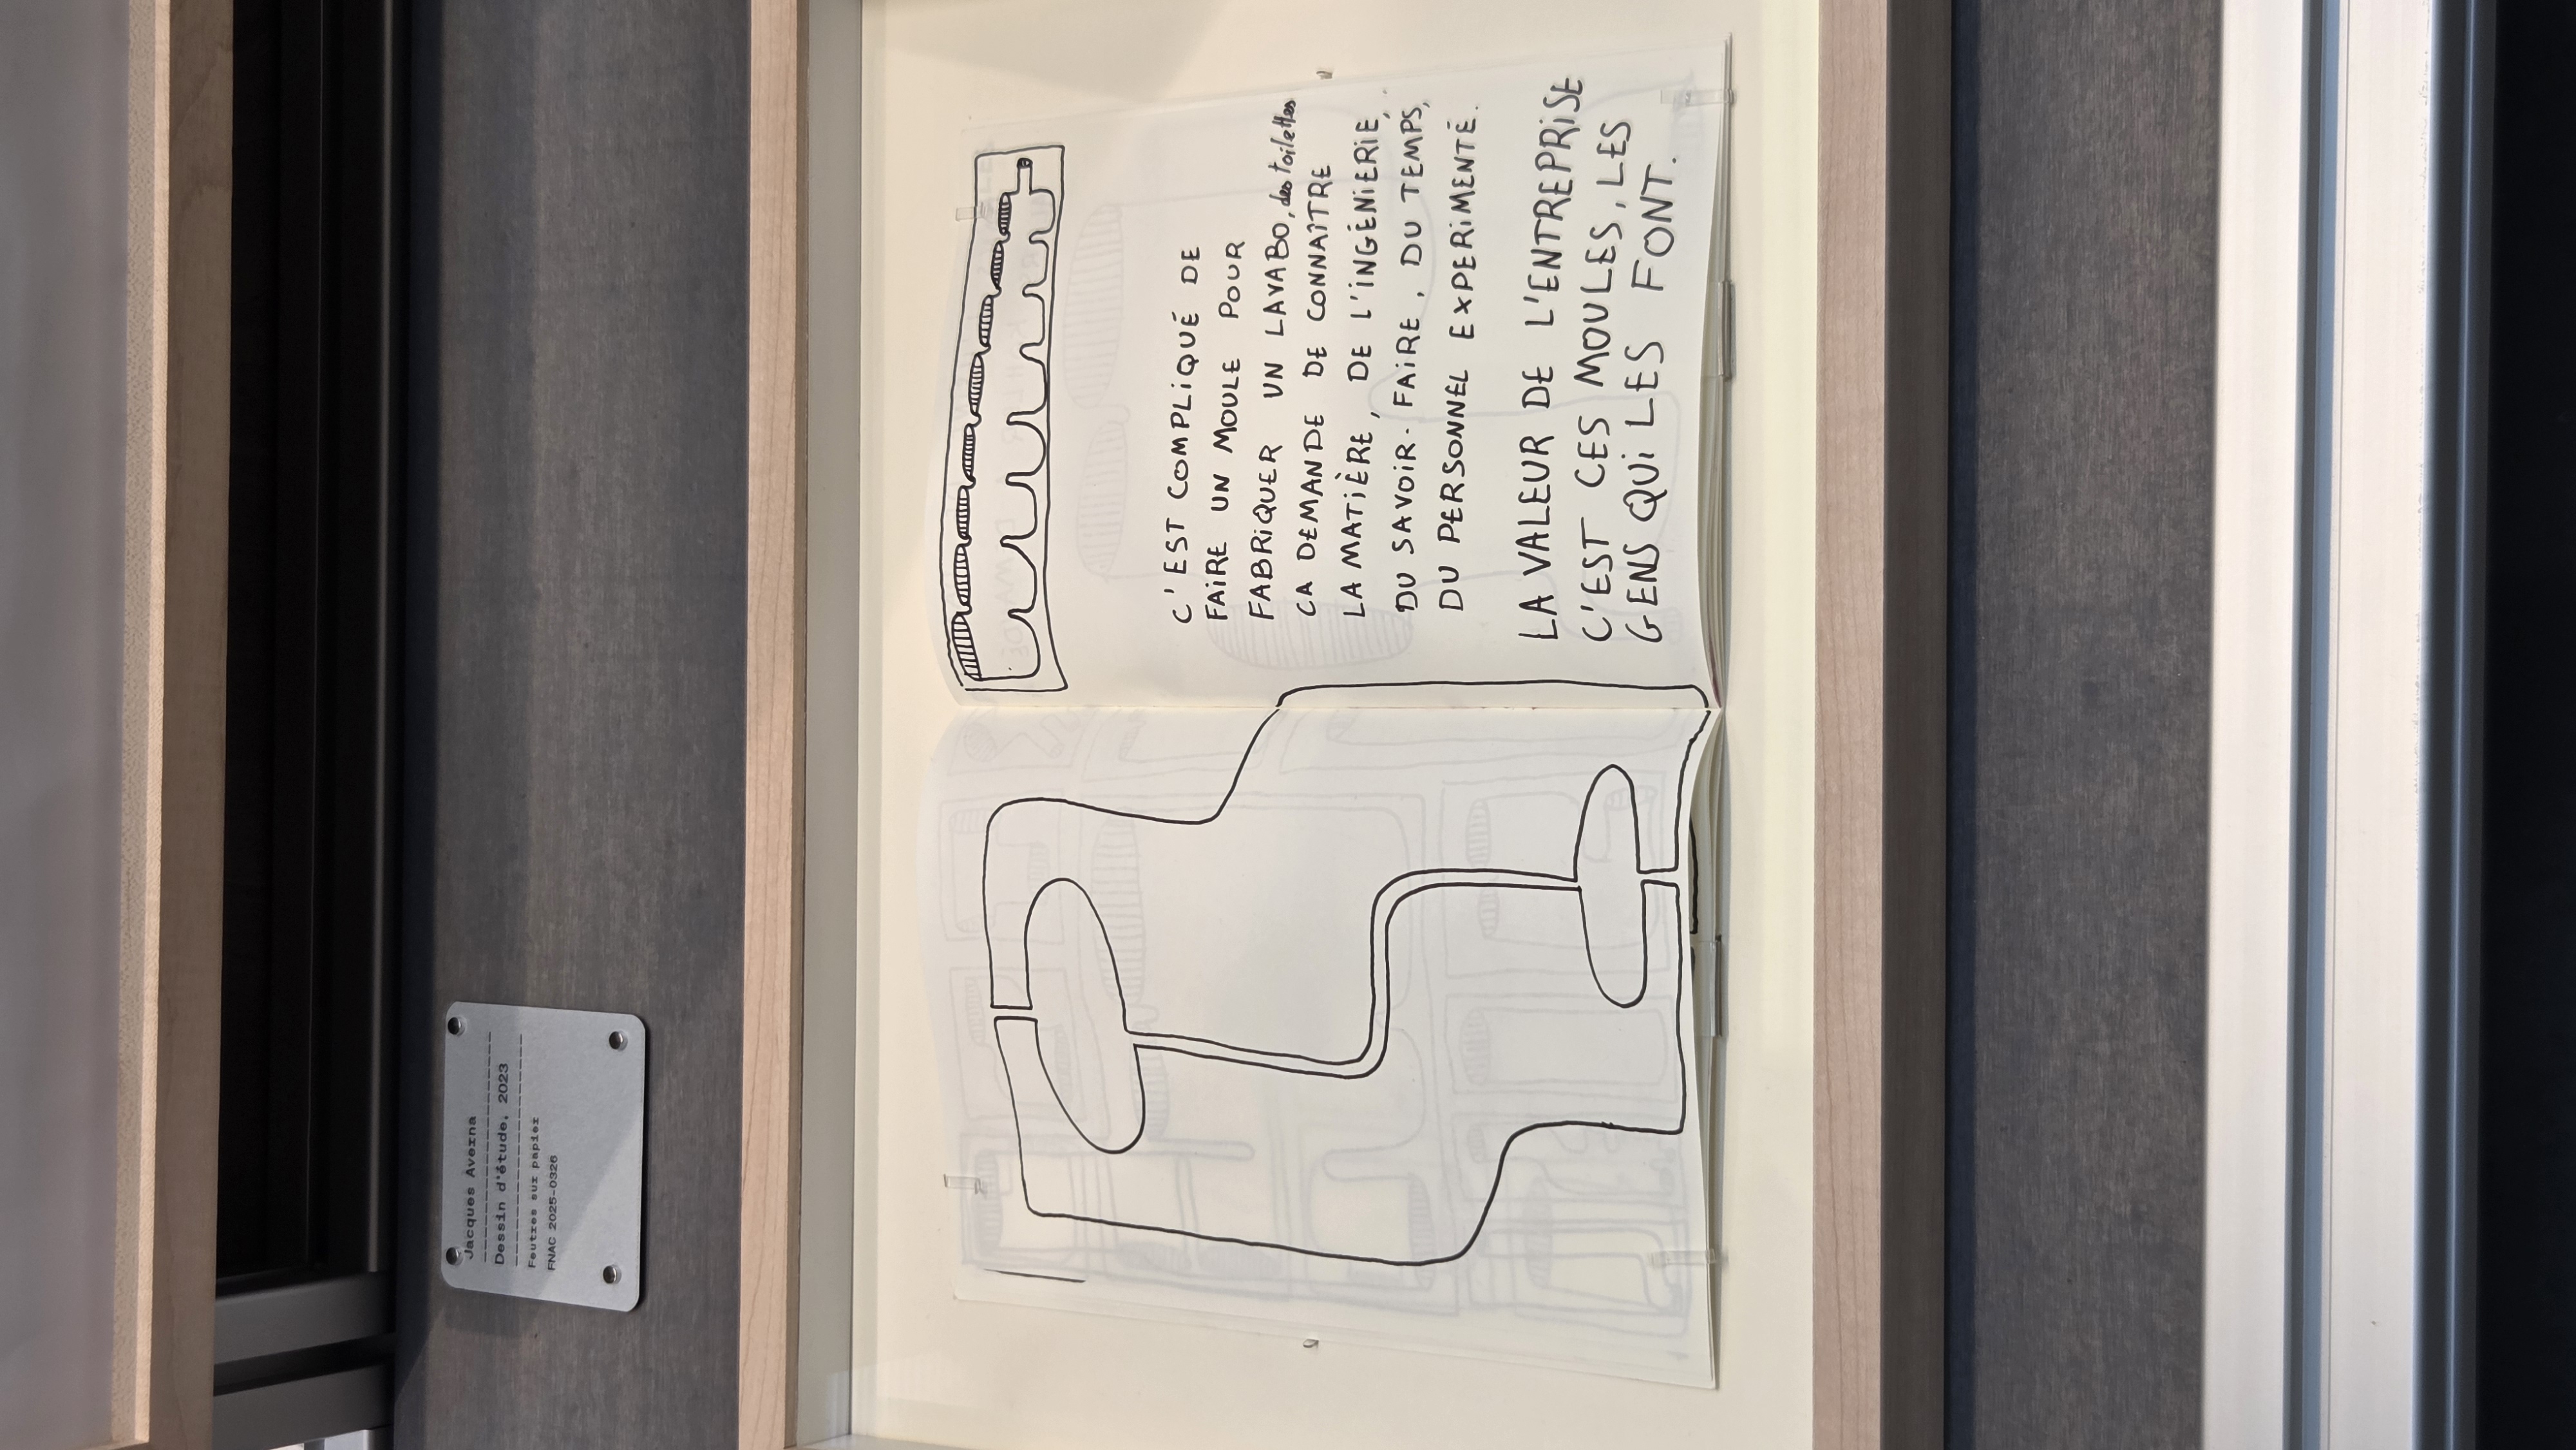 Jacques Averna
Dessin d'étude, 2023
Feutres sur papier
FNAC 2025-0326
C'EST COMPLIQUÉ DE
FAIRE UN MOULE POUR
FABRIQUER UN LAVABO, des toilettes
ÇA DEMANDE DE CONNAÎTRE
LA MATIÈRE, DE L'INGÉNIERIE,
DU SAVOIR-FAIRE, DU TEMPS,
DU PERSONNEL EXPERIMENTÉ.
LA VALEUR DE L'ENTREPRISE
C'EST CES MOULES, LES
GENS QUI LES FONT.